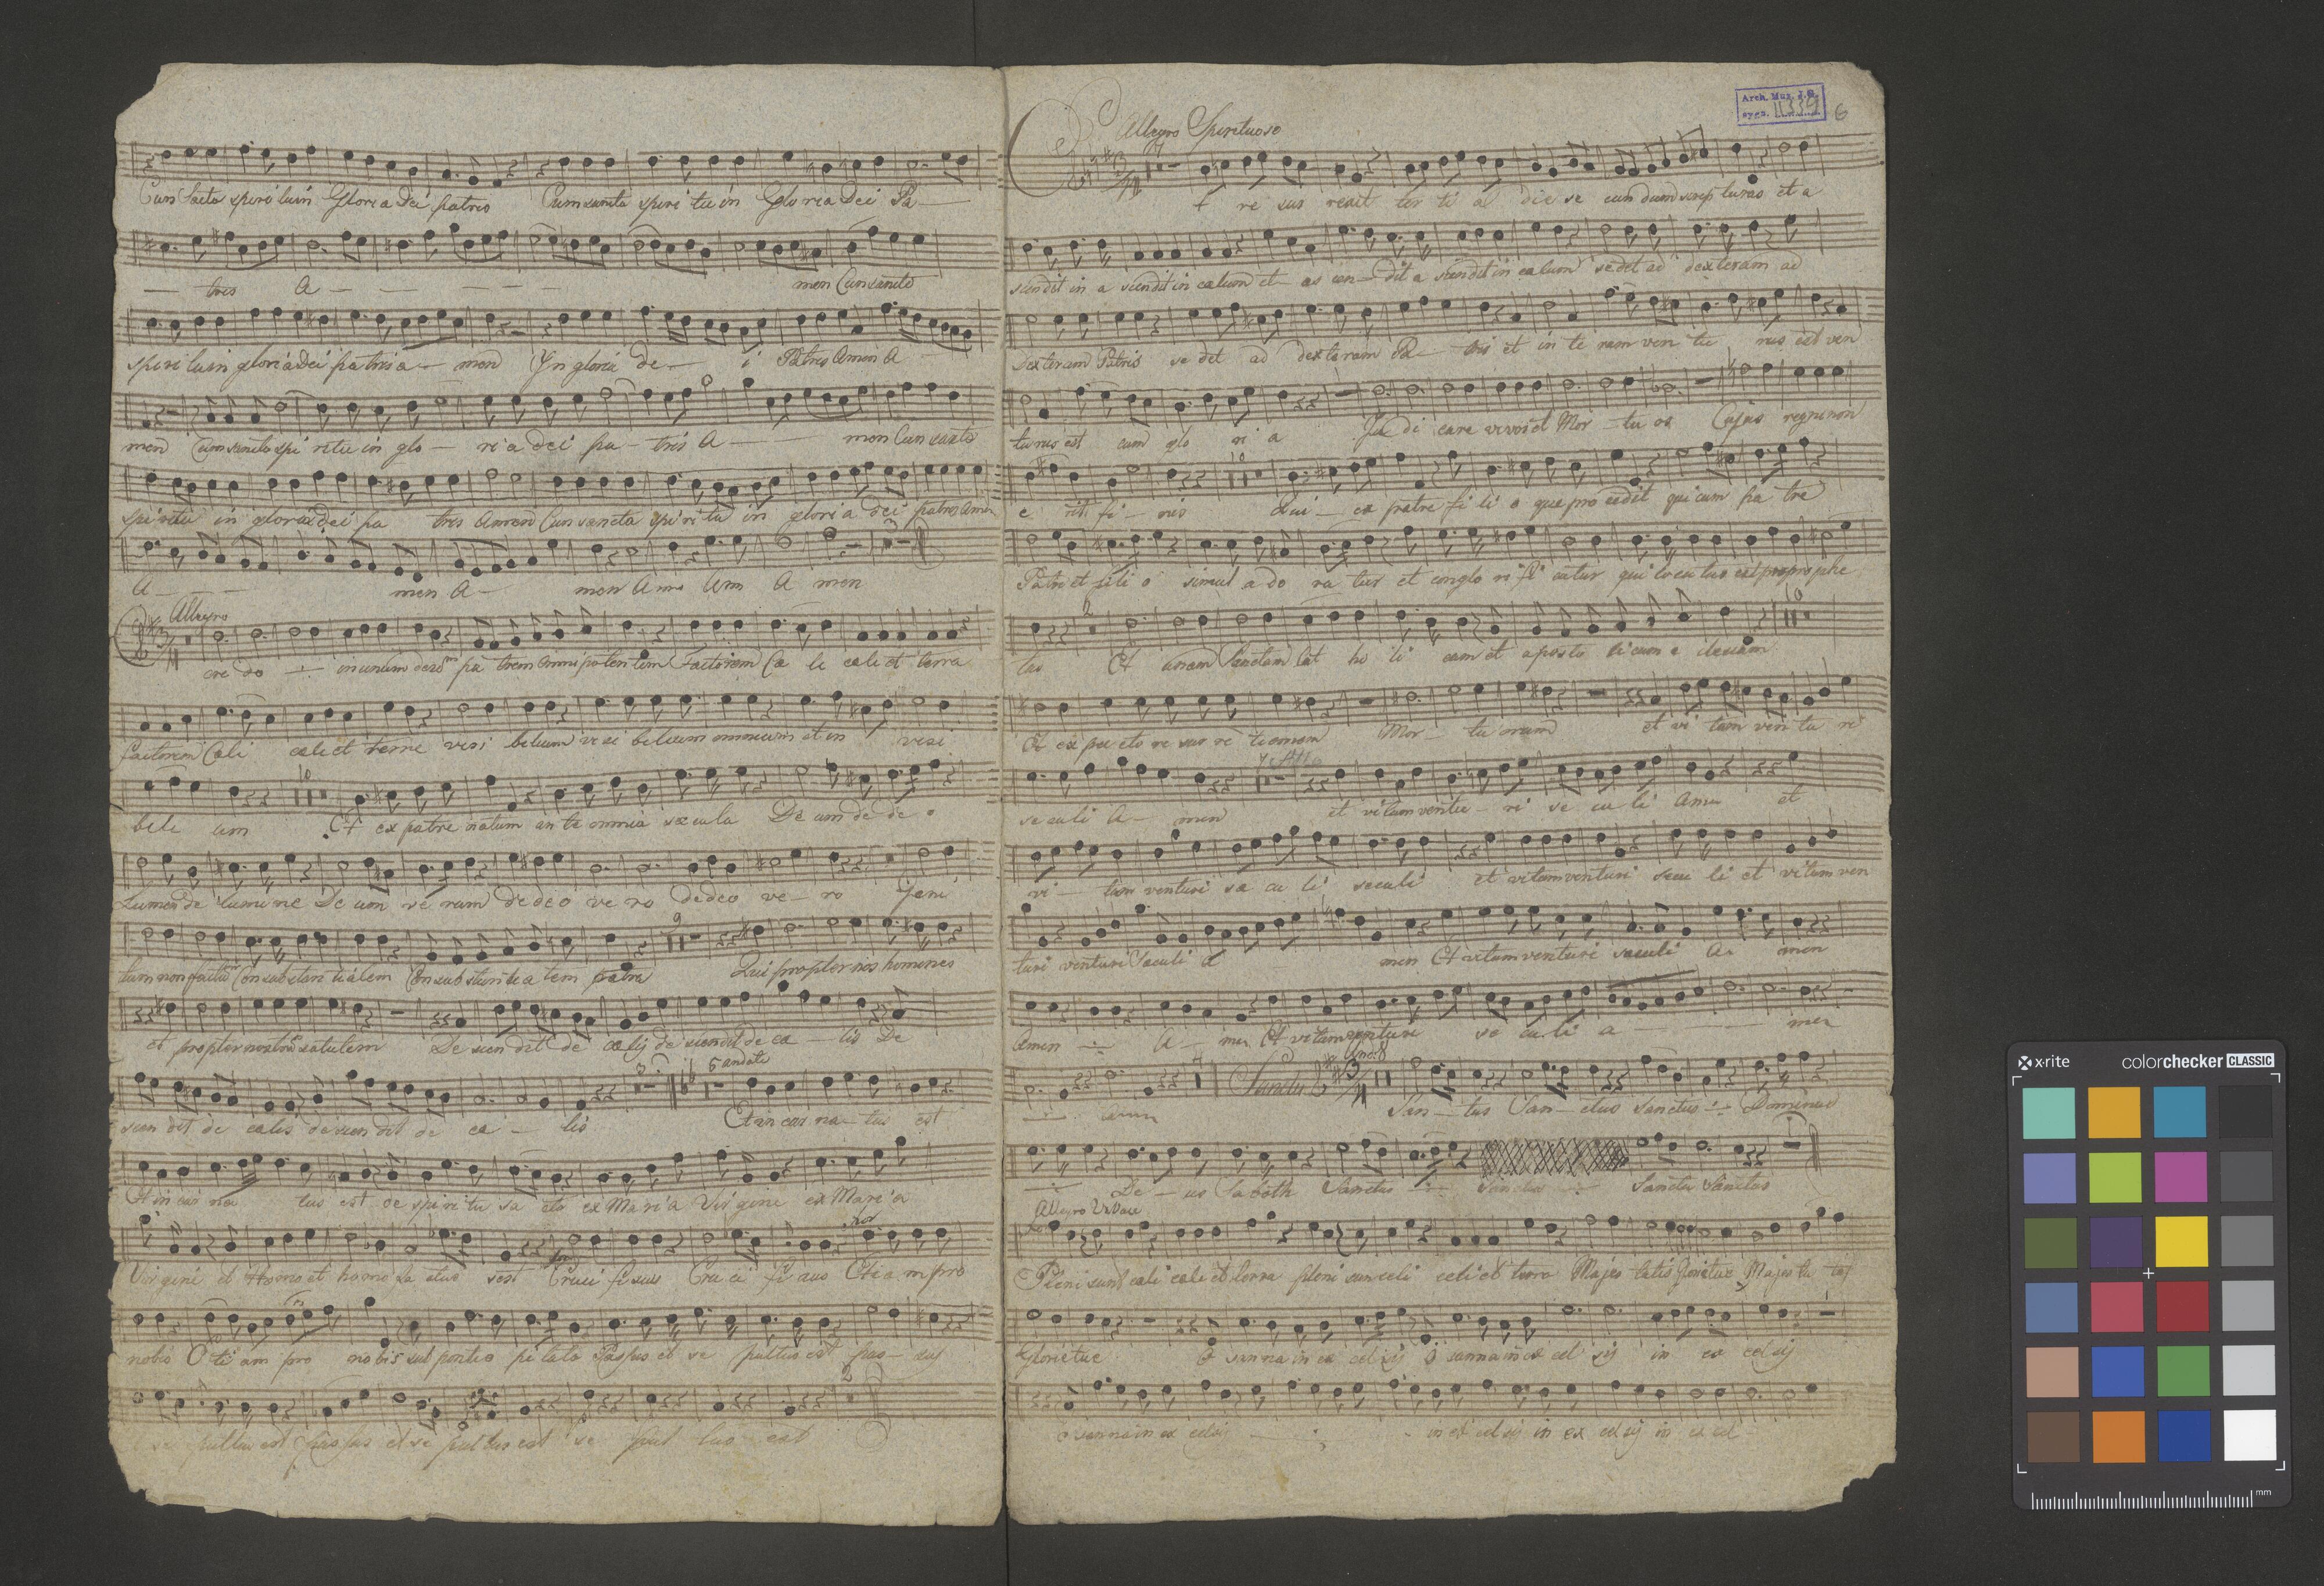 Cun Sacto spiri tuin Gloria Dei patris Cum sancto spiri tu in Gloria Dei Pa
tris A men Cun sancto
spiri tu in gloria Dei patris a men Yn gloria de i Patris Amen A
men Cum sancto spi ritu in glo ria dei pa tris A men Cun sancto
spiritu in gloria dei pa tris Amen Cun sancta spi ri tu in gloria dei patris Amen
A men A men Amn Amn A men
Allegro
cre do in unum deum pa trem omni poten tem Factorem Cæ li cæli et terra
factorem Cæli cæli et terre visi bilium visi bilium omnium et in visi
bili um Et ex patre natum an te omnia sæcula De um de de o
Lumen de lumi ne De um ve rum de de o ve ro de deo ve ro Jeni
tum non factum Consubstan tialem Consubstantia lem patri Qui propter nos homines
et propter nostram salutem De scen dit de cælis de scendit de cæ lis De
scen dit de cælis descen dit de cæ lis
5 andte
Et in car na tus est
Et in car na tus est de spiri tu sa cto ex Maria Vir gine ex Maria
Vir gini et Homo et homo fa ctus est Cruci fi xus Cru ci fi xus Etiam pro
nobis E ti am pro nobis sub pontio pi lato Passus et se pultus est pas sus
se pultus est passus et se pultus est se pul tus est
Arch. Muz. J.G.
sygn. II 339
6
Allegro Spirituoso
Et re sur rexit ter ti a die se cun dum scrip turas et a
scendit in a scendit in cælum et as cen dit a scendit in cælum sedet ad dexteram ad
dexteram Patris se det ad dexteram Pa tris et in te rum ven tu rus est ven
turus est cum glo ri a Ju di care vivos et Mor tu os Cujus regni non
e rit fi nis Qui ex patre fi li o que pro cedit qui cum pa tre
Patre et fili o simul a do ra tur et conglo ri fi catur qui locu tus est pro prophe
tas Et unam Sanctam Cat ho li cam et aposto licam e clesiam
Et ex pec to re sur re ctionem Mor tu orum et vi tam ven tu ri
se culi A men et vitam ventu ri se cu li Amn et
vi tam venturi sæ cu li seculi et vitam venturi secu li et vitam ven
turi venturi Sæculi A men Et vitam venturi sæculi A men
Amen A men Et vitam venturi se cu li a men
amn Sanctus San ctus San ctus Sanctus Dominus
De us Saboth Sanctus Sanctus Sanctu Sanctus
Allegro Vivace
Pleni sunt cæli cæli et terra pleni sunt celi celi et terra Majes tatis Glorie tuæ Majestatis
Glorie tue O sanna in ex cel sij O sanna in ex cel sij in ex cel sij
O sanna in ex celsij in ex cel sij in ex cel sij in ex cel
x-rite colorchecker CLASSIC
mm